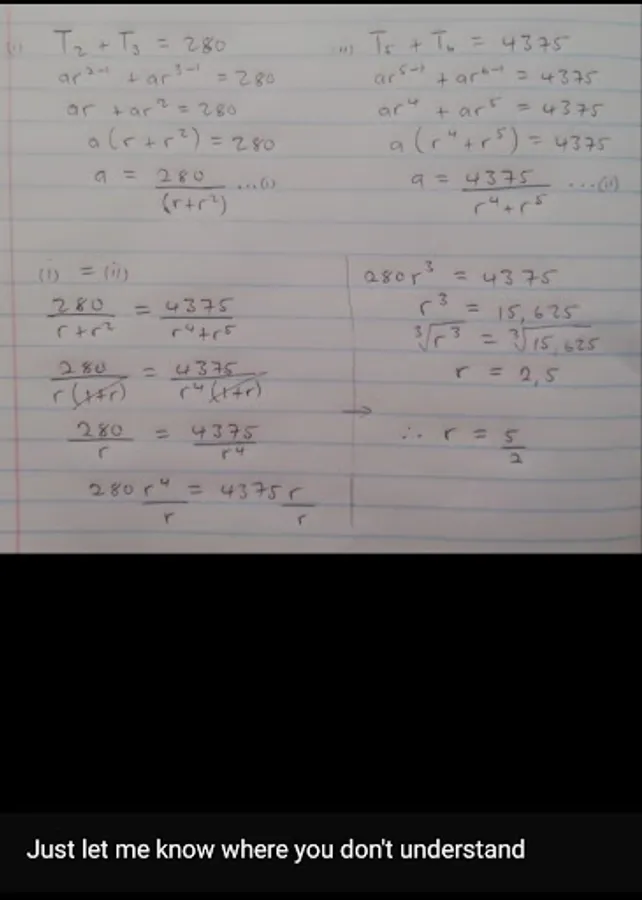 (i) T₂ + T₃ = 280
ar²⁻¹ + ar³⁻¹ = 280
ar + ar² = 280
a(r + r²) = 280
a = 280/(r+r²) ...(i)
(ii) T₅ + T₆ = 4375
ar⁵⁻¹ + ar⁶⁻¹ = 4375
ar⁴ + ar⁵ = 4375
a(r⁴ + r⁵) = 4375
a = 4375/r⁴+r⁵ ...(ii)
(i) = (ii)
280/r+r² = 4375/r⁴+r⁵
280/r(1+r) = 4375/r⁴(1+r)
280/r = 4375/r⁴
280r⁴/r = 4375r/r
→
280r³ = 4375
r³ = 15,625
∛r³ = ∛15,625
r = 2,5
∴ r = 5/2
Just let me know where you don't understand